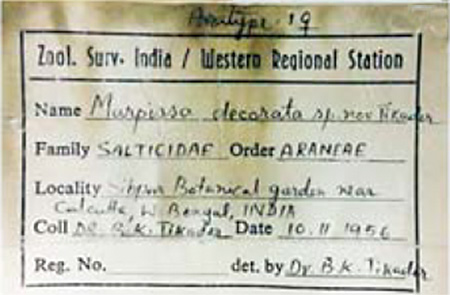 Allotype 1♀
Zool. Surv. India / Western Regional Station
Name Marpissa decorata sp. nov Tikader
Family SALTICIDAE Order ARANEAE
Locality Sibpur Botanical garden near
Calcutta, W. Bengal, INDIA
Coll Dr. B. K. Tikader Date 10.11 1956
Reg. No. det. by Dr. B. K. Tikader